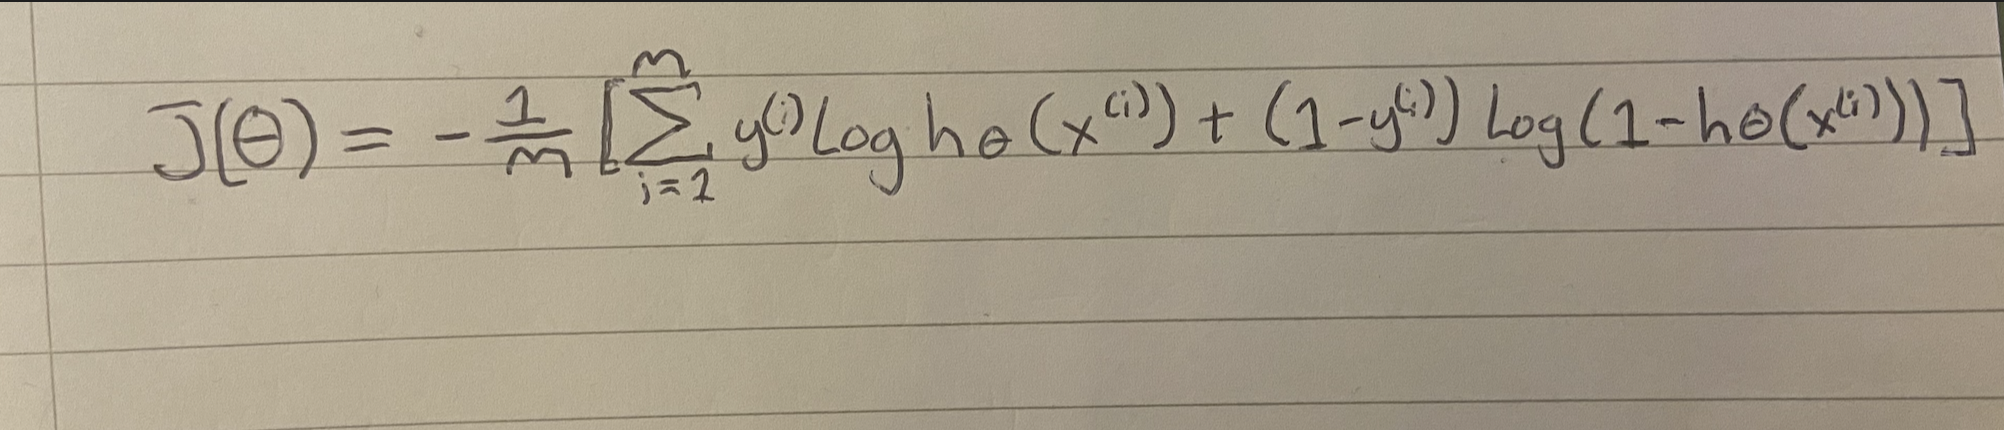 J(θ) = -1/m [∑_{i=1}^{m} y^{(i)} log hθ(x^{(i)}) + (1-y^{(i)}) log(1-hθ(x^{(i)}))]